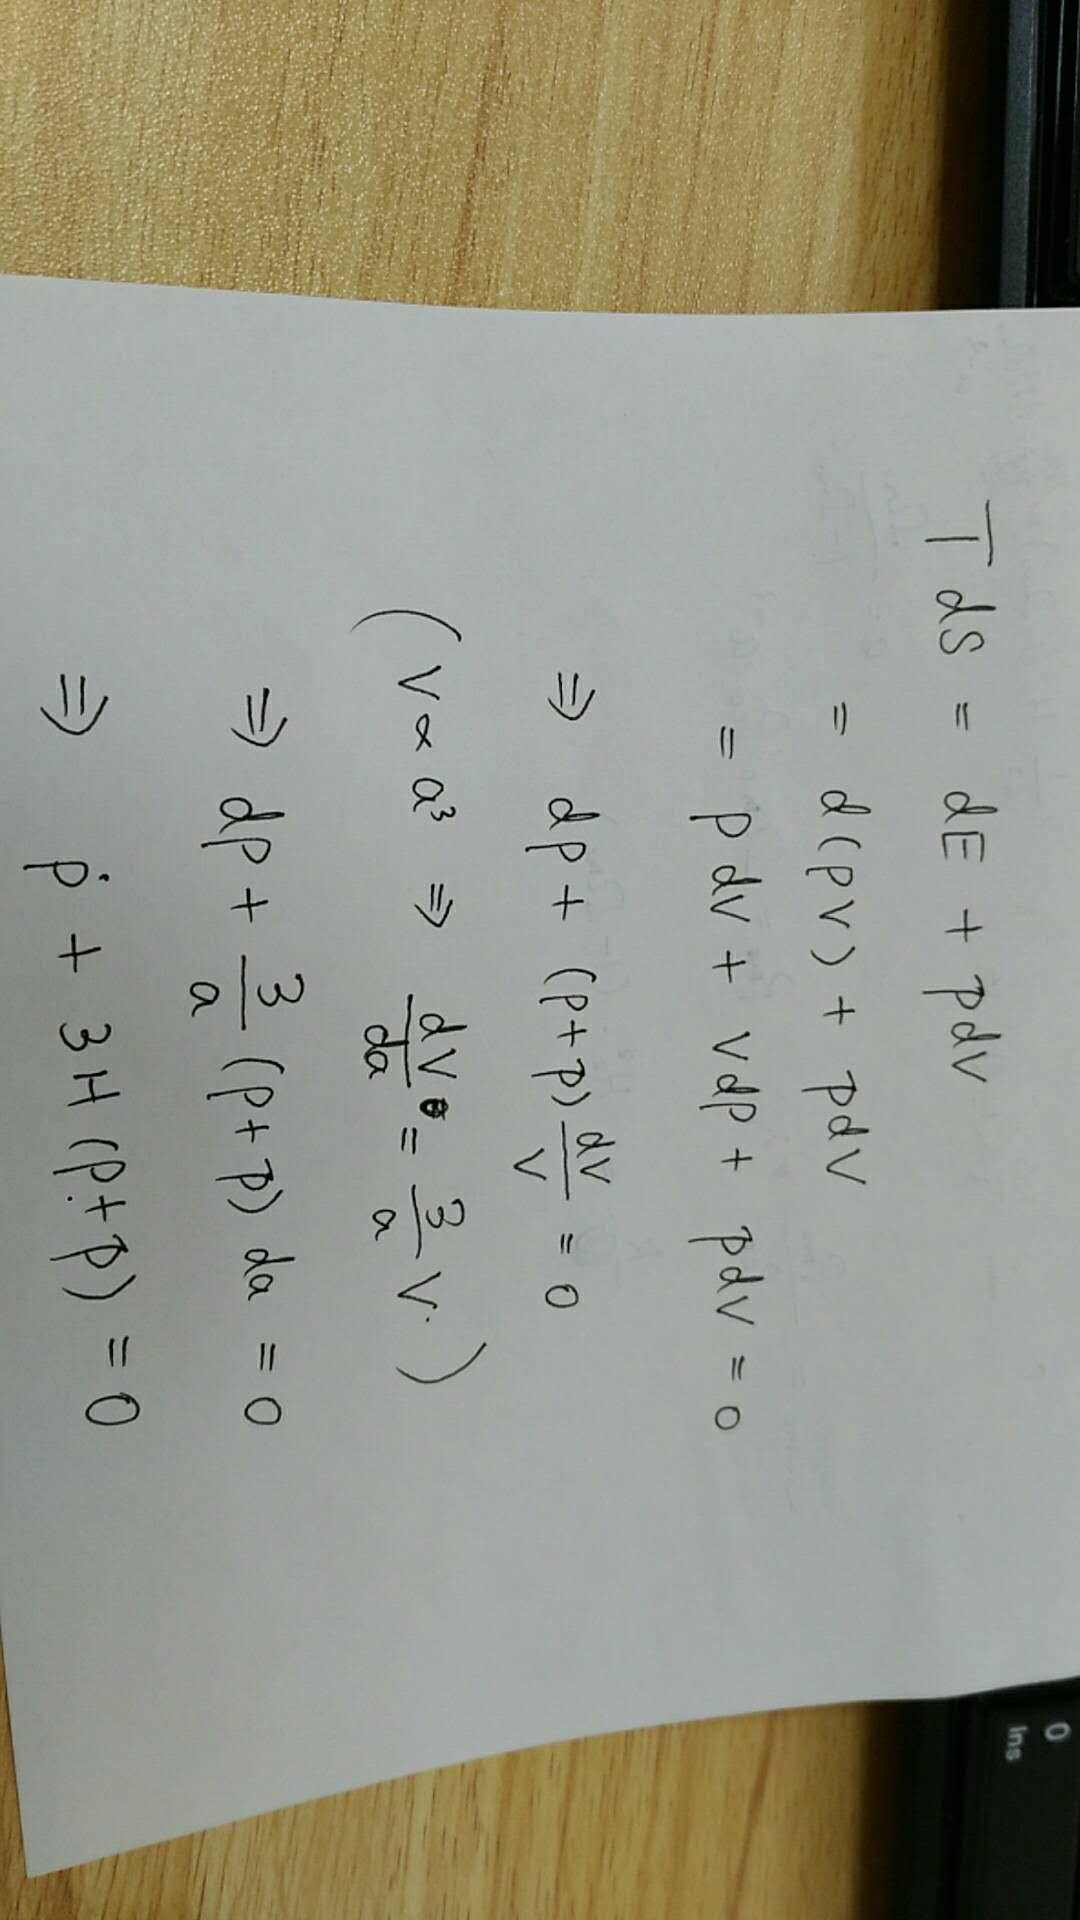 T dS = dE + pdV
= d(ρV) + pdV
= ρ dV + V dρ + pdV = 0
⇒ dρ + (ρ+p) dV/V = 0
(V ∝ a³ ⇒ dV/da = 3/a V.)
⇒ dρ + 3/a (ρ+p) da = 0
⇒ ρ̇ + 3H (ρ+p) = 0
0
Ins